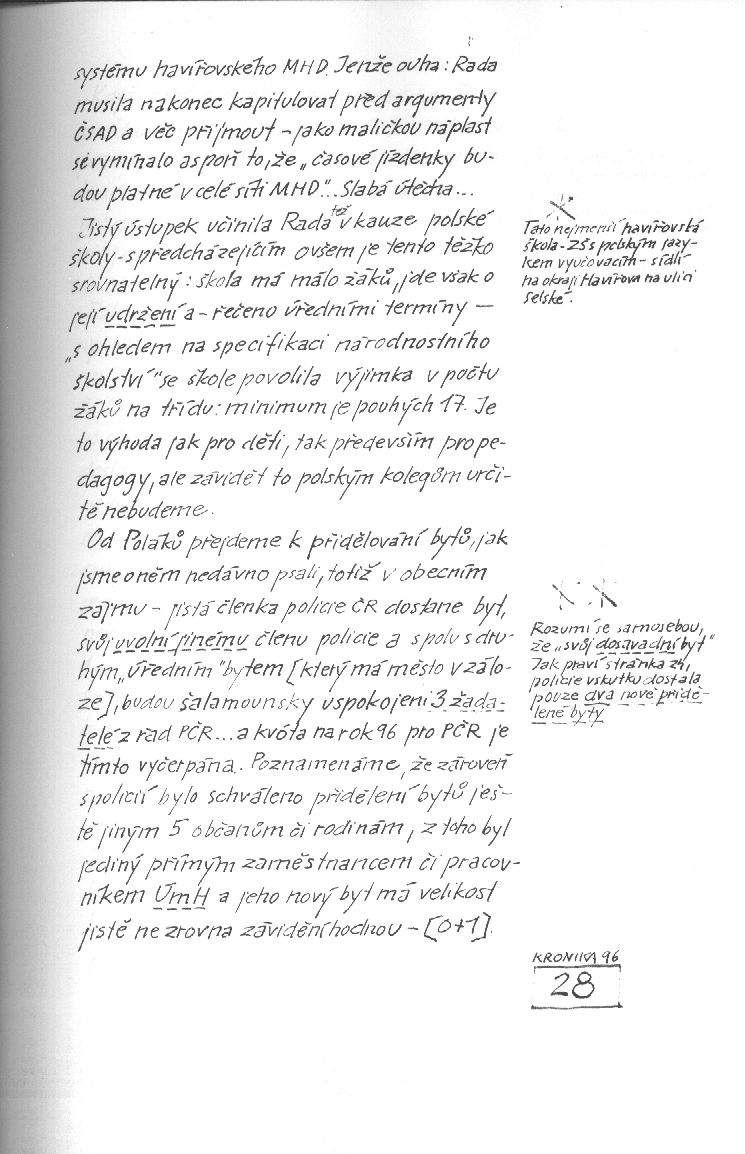 systému havířovského MHD. Jenže ouha: Rada
musila nakonec kapitulovat před argumenty
ČSAD a věc přijmout – jako maličkou náplast
se vymínalo aspoň to, že „časové jízdenky bu-
dou platné v celé síti MHD"... Slabá útěcha...
Jistý ústupek učinila Rada též v kauze polské
školy – s předcházejícím ovšem je tento těžko
srovnatelný: škola má málo žáků, jde však o
její udržení a – řečeno úředními termíny —
„s ohledem na specifikaci národnostního
školství" se škole povolila výjimka v počtu
žáků na třídu: minimum je pouhých 17. Je
to výhoda jak pro děti, tak především pro pe-
dagogy, ale závidět to polským kolegům urči-
tě nebudeme.
Od Poláků přejdeme k přidělování bytů, jak
jsme o něm nedávno psali, totiž v obecním
zájmu – jistá členka policie ČR dostane byt,
svůj uvolní jinému členu policie a spolu s dru-
hým „úředním" bytem [který má město v zálo-
ze], budou šalamounsky uspokojeni 3 žada-
telé z řad PČR... a kvóta na rok 96 pro PČR je
tímto vyčerpána. Poznamenáme, že zároveň
s policií bylo schváleno přidělení bytů ješ-
tě jiným 5 občanům či rodinám, z toho byl
jediný přímým zaměstnancem či pracov-
níkem ÚmH a jeho nový byt má velikost
jistě ne zrovna záviděníhodnou – [0+1].
Tato nejmenší havířovská
škola – ZŠ s polským jazy-
kem vyučovacím – sídlí
na okraji Havířova na ulici
Selské.
Rozumí se samosebou,
že „svůj dosavadní byt"
Jak praví stránka 24,
policie vskutku dostala
pouze dva nově přidě-
lené byty
KRONIKA 96
28